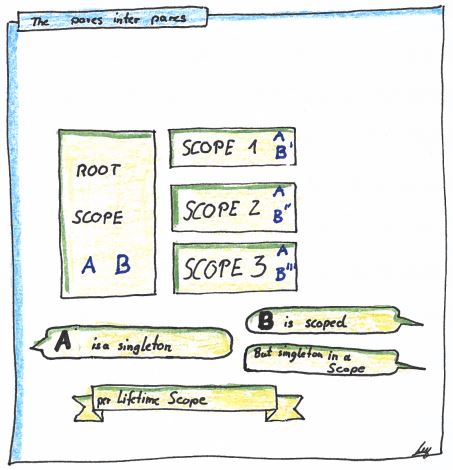 The pares inter pares
ROOT
SCOPE
A B
SCOPE 1 A
B'
SCOPE 2 A
B''
SCOPE 3 A
B'''
A is a singleton
B is scoped
But singleton in a
Scope
per Lifetime Scope